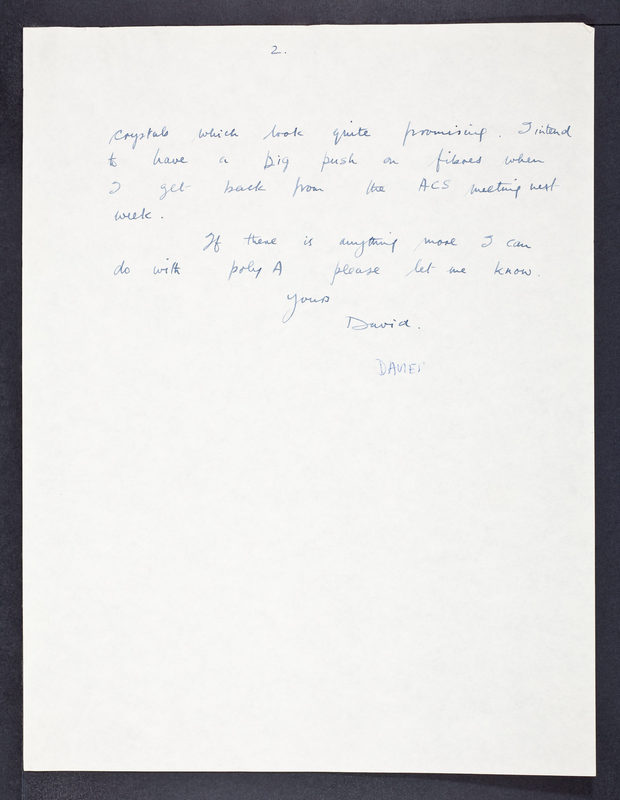 2.
crystals which look quite promising. I intend
to have a big push on fibres when
I get back from the ACS meeting next
week.
If there is anything more I can
do with poly A please let me know.
Yours
David.
DAVIES